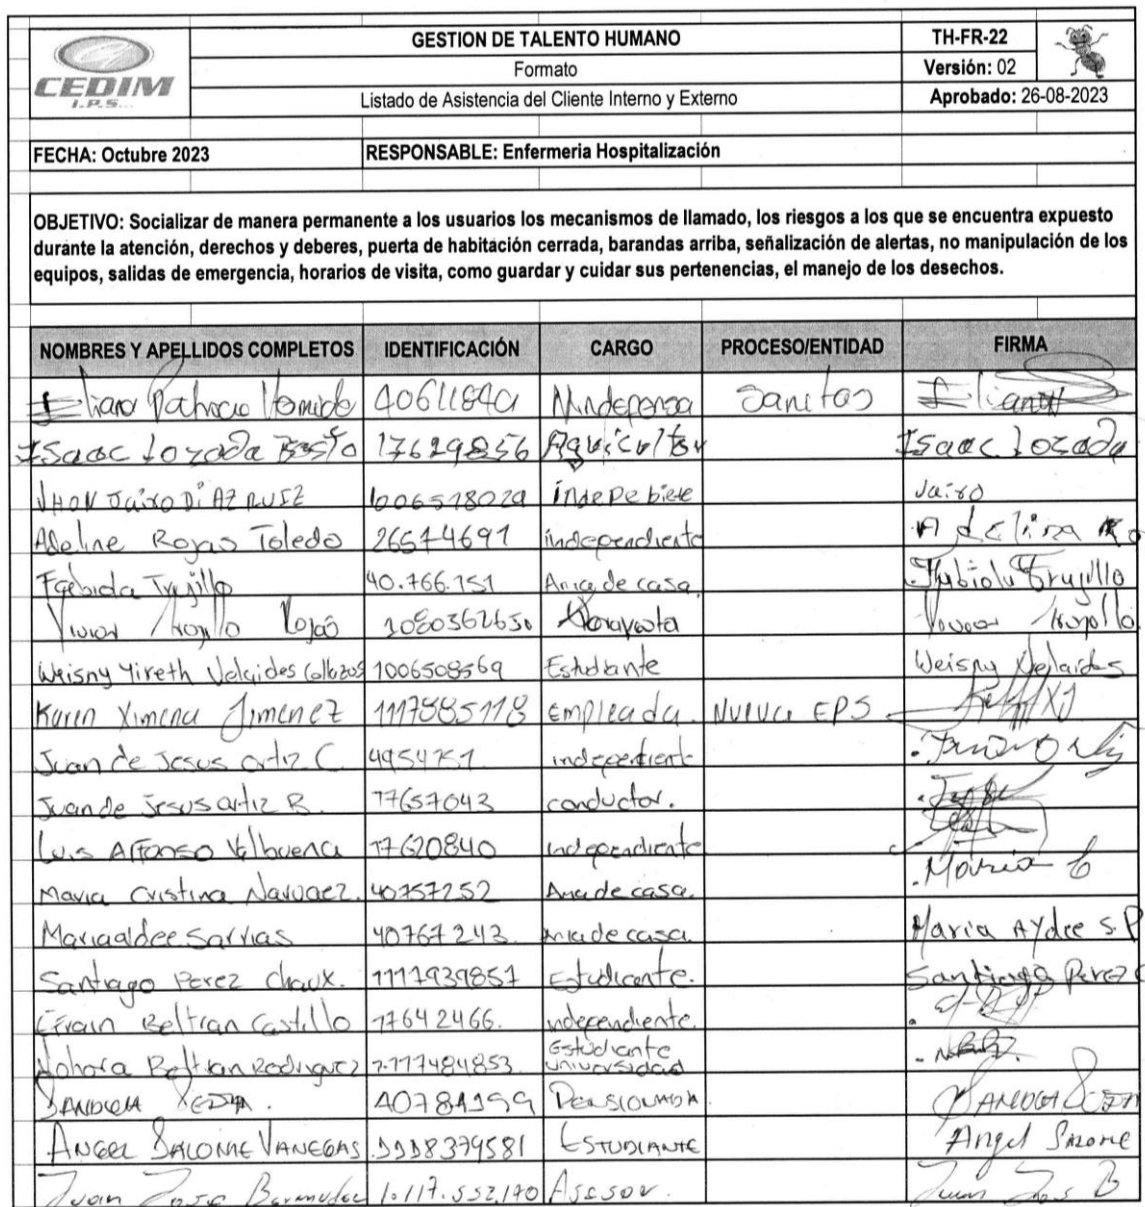 CEDIM
I.P.S.
GESTION DE TALENTO HUMANO
TH-FR-22
Formato
Versión: 02
Listado de Asistencia del Cliente Interno y Externo
Aprobado: 26-08-2023
FECHA: Octubre 2023 RESPONSABLE: Enfermeria Hospitalización
OBJETIVO: Socializar de manera permanente a los usuarios los mecanismos de llamado, los riesgos a los que se encuentra expuesto
durante la atención, derechos y deberes, puerta de habitación cerrada, barandas arriba, señalización de alertas, no manipulación de los
equipos, salidas de emergencia, horarios de visita, como guardar y cuidar sus pertenencias, el manejo de los desechos.
NOMBRES Y APELLIDOS COMPLETOS IDENTIFICACIÓN CARGO PROCESO/ENTIDAD FIRMA
Sanitas
Isaac Lozada 17629856 Isaac Lozada
JHON Jairo DiAZ RUIZ 1006518029 Jairo
Adeline Rojas Toledo 26574691 independiente
Trujillo 40.766.151 Ama de casa. Trujillo
Trujillo Rojas 1080362630 Trujillo
Weisny Yireth Collazos 1006508569 Estudiante Weisny
Karen Ximena Jimenez 1117885118 Empleada. Nueva EPS
Juan de Jesus ortiz C. 4954751
Juan de Jesus ortiz B. 17657043 conductor.
Luis Alfonso Valbuena 17620840 independiente
Maria Cristina Narvaez. 40757252 Ama de casa. Maria C
Sarrias 40767243. Ama de casa. Maria Aydee S.P
Santiago Perez Chaux. 1111939851 Estudiante. Santiago Perez C
Efrain Beltran Castillo 17642466. independiente.
Nohora Beltran Rodriguez 1.117484853 Estudiante
universidad
40781199 PENSIONADA.
ANGEL SALOME VANEGAS 1118379581 ESTUDIANTE Angel Salome
Juan Jose Bermudez 1.117.552.170 Asesor. Juan Jos B